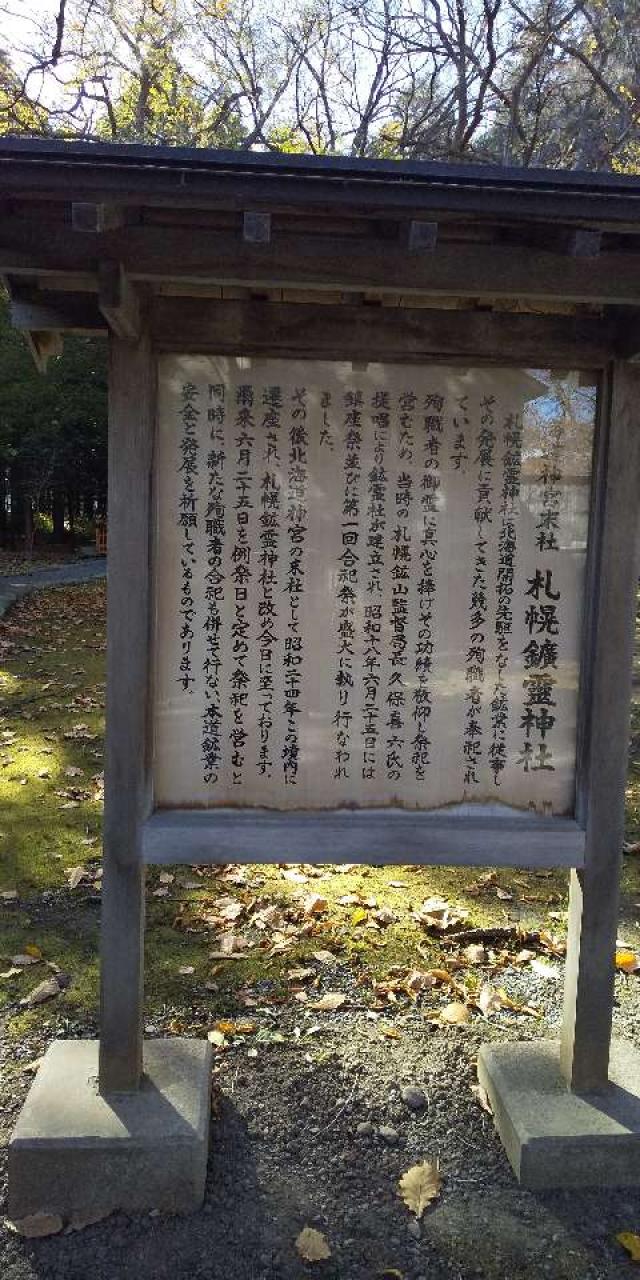 神宮末社 札幌鑛霊神社
札幌鉱霊神社は北海道開拓の先駆をなした鉱業に従事し
その発展に貢献してきた幾多の殉職者が奉祀され
ています。
殉職者の御霊に真心を捧げその功績を敬仰し祭祀を
営むため、当時の札幌鉱山監督局長久保喜六氏の
提唱により鉱霊社が建立され、昭和十八年六月二十五日には
鎮座祭並びに第一回合祀祭が盛大に執り行なわれ
ました。
その後北海道神宮の末社として昭和二十四年この境内に
遷座され、札幌鉱霊神社と改め今日に至っております。
爾来六月二十五日を例祭日と定めて祭祀を営むと
同時に、新たな殉職者の合祀も併せて行ない、本道鉱業の
安全と発展を祈願しているものであります。